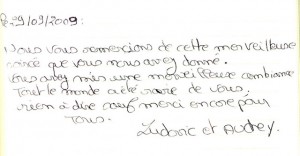 29/09/2009.
Nous vous remercions de cette merveilleuse
soirée que vous nous avez donné.
Vous avez mis une merveilleuse ambiance
Tout le monde a été ravie de vous,
rien à dire sauf merci encore pour
Tous.
Ludovic et Audrey.